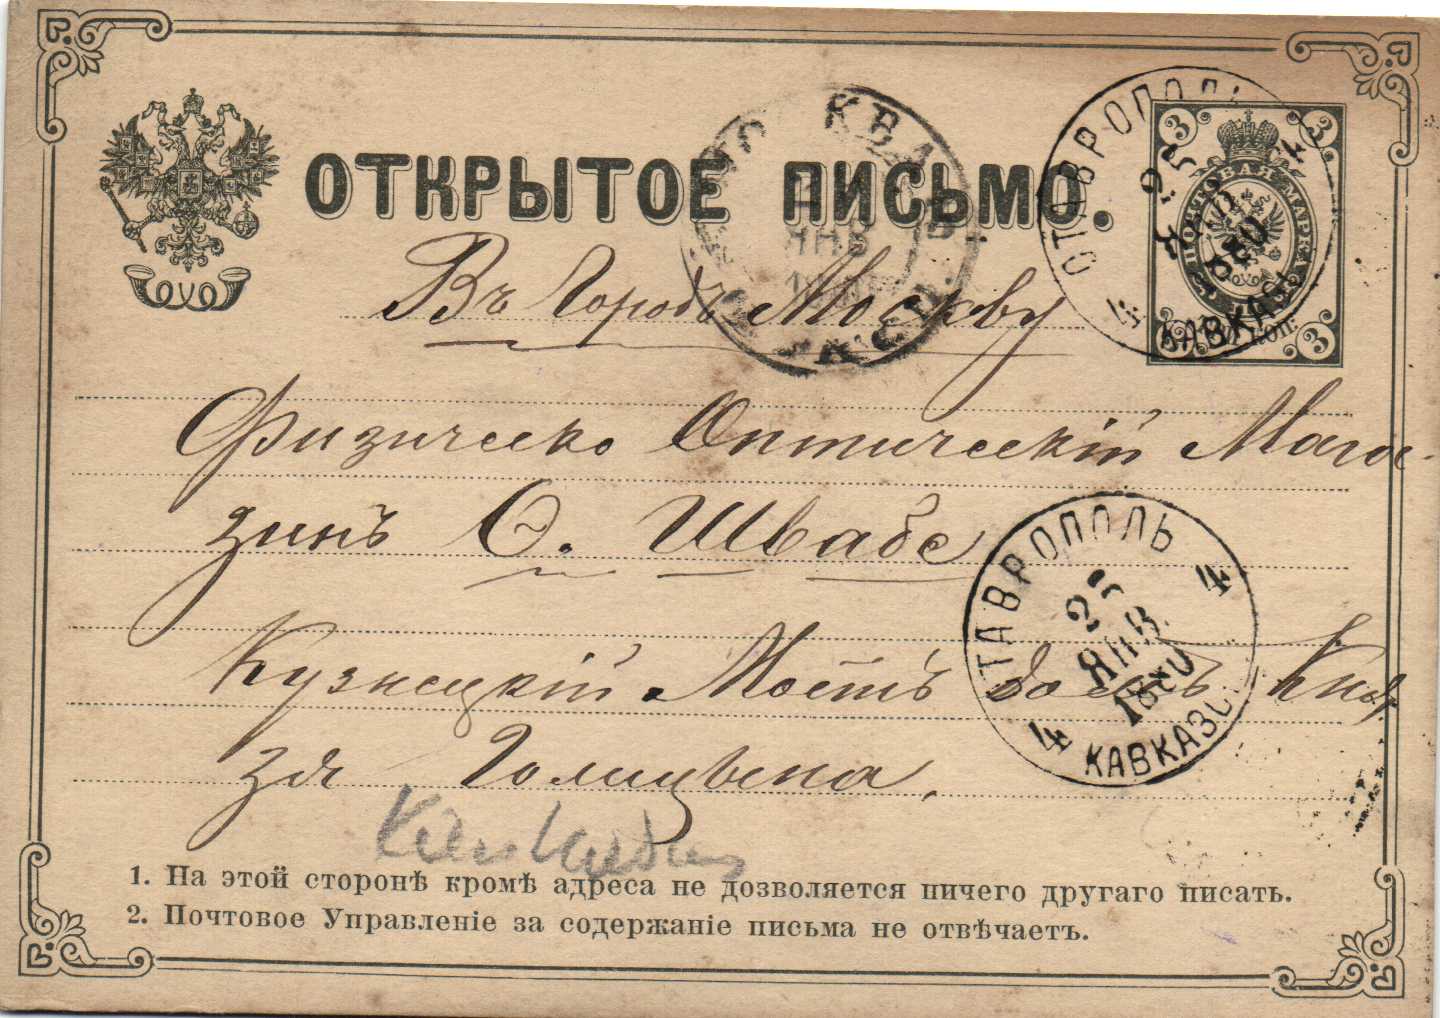 ОТКРЫТОЕ ПИСЬМО.
3 3
ПОЧТОВАЯ МАРКА
3 3
СТАВРОПОЛЬ
4 25 4
ЯНВ
1880
КАВКАЗС.
МОСКВА
ЯНВ
Въ Городъ Москву
Физическо Оптическій Мага-
зинъ Ѳ. Швабе
Кузнецкій Мостъ домъ Кня
зя Голицына.
СТАВРОПОЛЬ
25 4
ЯНВ.
1880
4 КАВКАЗС.
1. На этой сторонѣ кромѣ адреса не дозволяется ничего другаго писать.
2. Почтовое Управленіе за содержаніе письма не отвѣчаетъ.